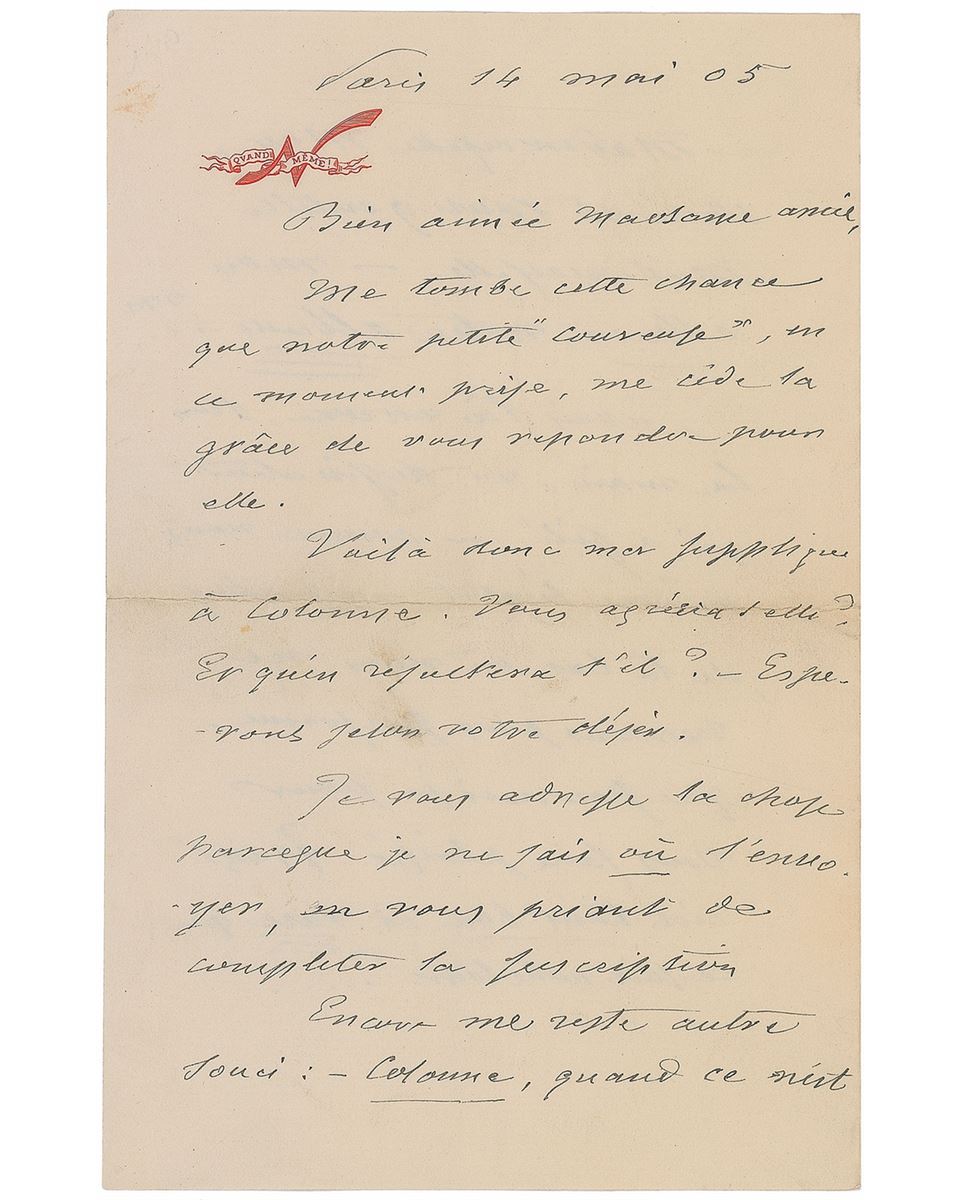 Paris 14 mai 05
QUAND MÊME!
Bien aimée Madame amie,
Me tombe cette chance
que notre petite "coureuse", en
ce moment prise, me cède la
grâce de vous repondre pour
elle.
Voilà donc ma supplique
à Colonne. Vous agréera t elle?
Et qu'en résultera t'il? – Espe-
-rons selon votre désir.
Je vous adresse la chose
parceque je ne sais où l'envo-
-yer, en vous priant de
completer la suscription
Encore me reste autre
souci : – Colonne, quand ce n'est